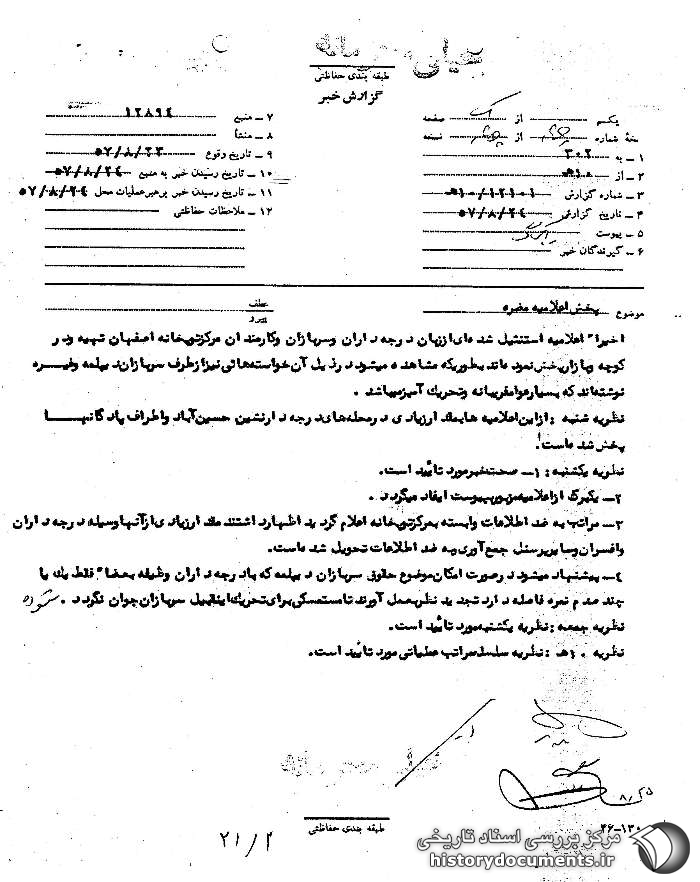 طبقه بندی حفاظتی
گزارش خبر
یکم از یک صفحه
نسخهٔ شماره از نسخه
۱ ـ به ۳۰۲
۲ ـ از ۱۰ه
۳ ـ شماره گزارش ۱۰ه/۱۲۱۰۱
۴ ـ تاریخ گزارش ۵۷/۸/۲۴
۵ ـ پیوست
۶ ـ گیرندگان خبر
۷ ـ منبع ۱۲۸۹۴
۸ ـ منشأ
۹ ـ تاریخ وقوع ۵۷/۸/۲۳
۱۰ ـ تاریخ رسیدن خبر به منبع ۵۷/۸/۲۴
۱۱ ـ تاریخ رسیدن خبر برهبر عملیات محل ۵۷/۸/۲۴
۱۲ ـ ملاحظات حفاظتی
موضوع پخش اعلامیه مضره
عطف
اخیرا" اعلامیه استنسیل شده‌ای از زبان درجه داران و سربازان و کارمندان مرکز توپخانه اصفهان تهیه و در
کوچه و بازار پخش نموده‌اند بطوریکه مشاهده میشود در ذیل آن خواسته‌هائی نیز از طرف سربازان دیپلمه وغیره
نوشته‌اند که بسیار عوامفریبانه و تحریک آمیز میباشد .
نظریه شنبه : از این اعلامیه ها بعد از زیادی در محله‌های درجه دار نشین حسین‌آباد و اطراف پادگانها
پخش شده است !
نظریه یکشنبه : ۱ـ صحت خبر مورد تأئید است.
۲ـ یکبرگ از اعلامیه مزبور بپیوست ایفاد میگردد .
۳ـ مراتب به ضد اطلاعات وابسته به مرکز توپخانه اعلام گردید اظهار داشتند عده زیادی از آنها وسیله درجه داران
و افسران و سایر پرسنل جمع آوری و به ضد اطلاعات تحویل شده است.
۴ـ پیشنهاد میشود در صورت امکان موضوع حقوق سربازان دیپلمه که با درجه داران وظیفه بعضا" فقط یک یا
چند صدم نمره فاصله دارد تجدید نظر بعمل آورند تا مستمسکی برای تحریک اینقبیل سربازان جوان نگردد .
نظریه جمعه : نظریه یکشنبه مورد تأئید است.
نظریه ۱۰ه : نظریه سلسله مراتب عملیاتی مورد تأئید است.
۸/۲۵
طبقه بندی حفاظتی
۲۱/۲
۴۶-۱۳۰
مرکز بررسی اسناد تاریخی
historydocuments.ir